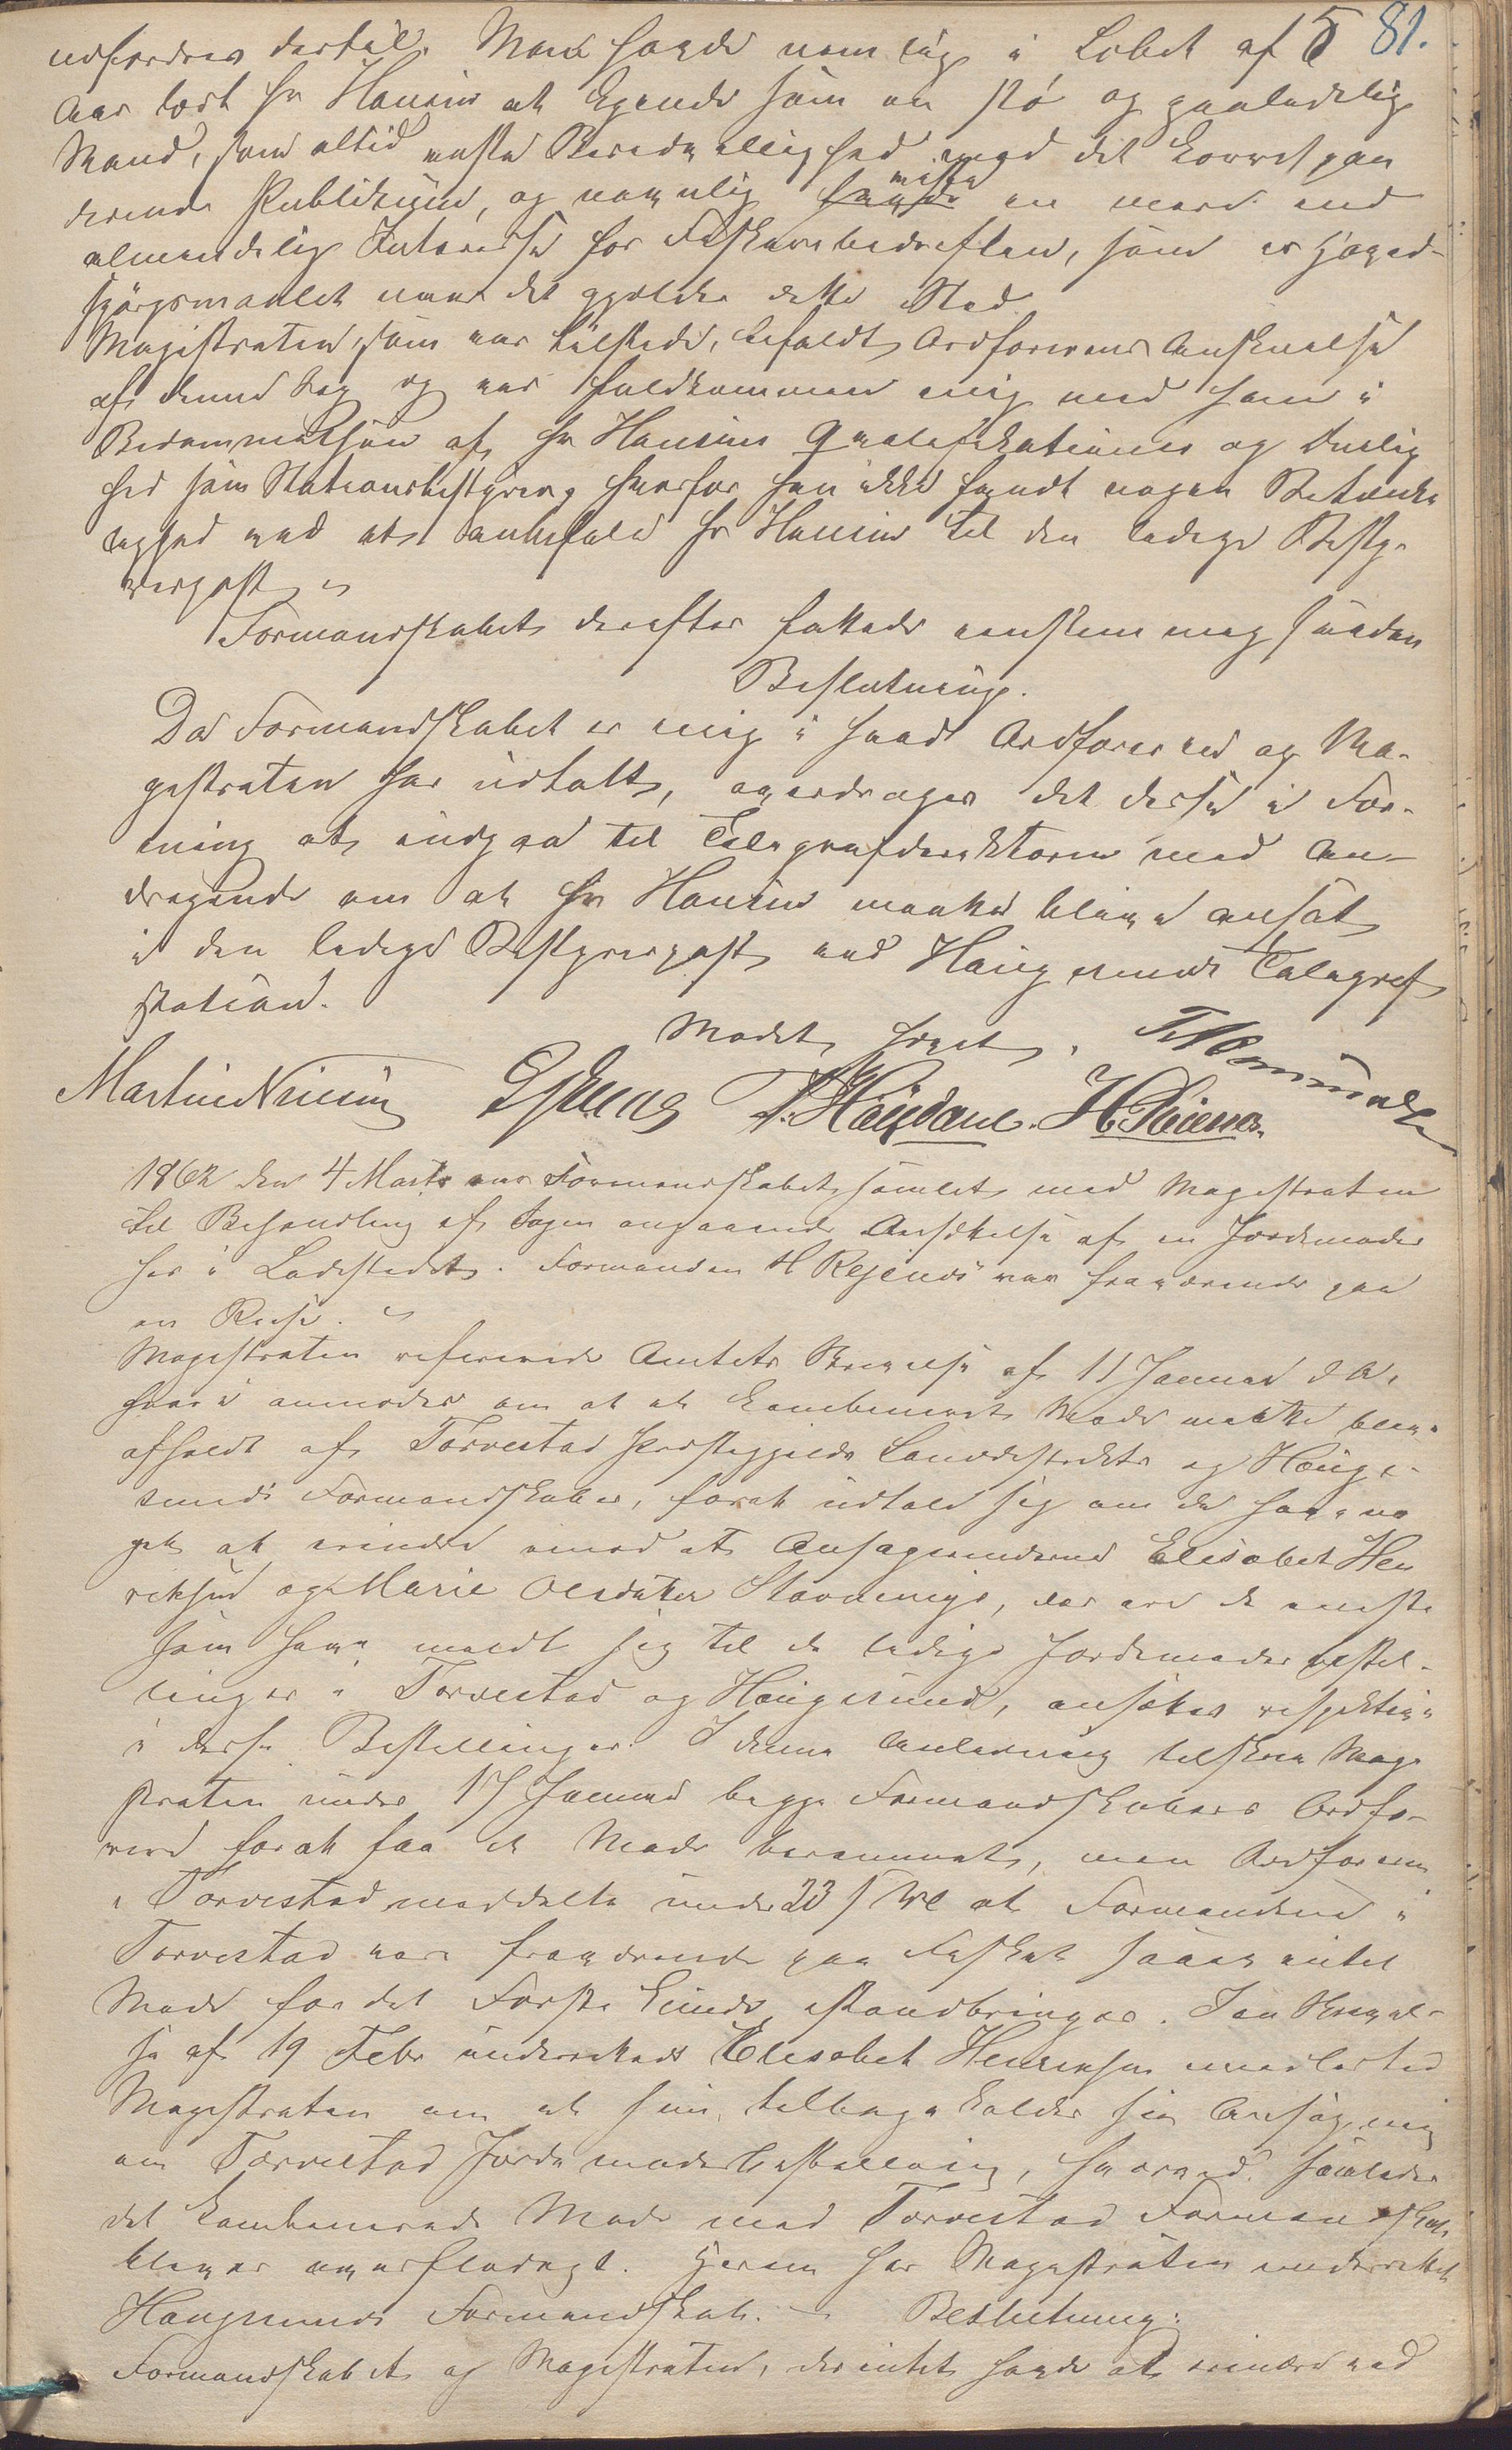 udfordres dertil. Man havde nemlig i Løbet af 5 81.
Aar lært Hr Hansen at kjende som en stø og paalidelig
Mand, som altid viste Beredvillighed mod det korrespon
derende Publikum, og navnlig havde viste en mere end
almindelig Interesse for Fiskeribedriften, som er Hoved-
spørgsmaalet naar det gjælder dette Sted.
Magistraten, som var tilstede, bifaldt Ordførerens Anskuelse
af denne Sag og var fuldkommen enig med ham i
Bedømmelsen af Hr Hansens Qvalifikationer og Duelig
hed som Stationsbestyrer, hvorfor han ikke fandt nogen Betænke
lighed ved at anbefale Hr Hansen til den ledige Besty-
rerpost.
Formandskabet derefter fattede eenstemmig saadan
Beslutning.
Da Formandskabet er enig i hvad Ordføreren og Ma-
gistraten har udtalt, overdrages det disse i For-
ening at indgaa til Telegrafdirektøren med An-
dragende om at Hr Hansen maatte blive ansat
i den ledige Bestyrerpost ved Haugesunds Telegraf
station.
Mødet hævet.
Martin Nissen
1862 den 4 Marts var Formandskabet samlet med Magistraten
til Behandling af Sagen angaaende Ansættelse af en Jordemoder
her i Ladestedet. Formanden H Reiens var fraværende paa
en Reise.
Magistraten refererede Amtets Skrivelse af 11 Januar d. A.
hvori anmodes om at et kombineret Møde maatte blive
afholdt af Torvestad Præstegjelds Landdistrikts og Hauge-
sunds Formandskaber, forat udtale sig om de have no
get at erindre imod at Ansøgerinderne Elisabet Hen
riksen og Marie Olesdatter Stavenæs, der ere de eneste
som have meldt sig til de ledige Jordemoderbestil-
linger i Torvestad og Haugesund, ansættes respektive
i disse Bestillinger. I denne Anledning tilskrev Magi
straten under 17 Januar begge Formandskabers Ordfø-
rere forat faa et Møde berammet, men Ordføreren
i Torvestad meddelte under 23 s. M. at Formændene i
Torvestad vare fraværende paa Fisket saa at intet
Møde for det Første kunde istandbringes. I en Skrivel-
se af 19 Febr underrettede Elisabet Henriksen imidlertid
Magistraten om at hun tilbagekalder sin Ansøgning
om Torvestad Jordemoderbestilling, hvorved saaledes
det kombinerede Møde med Torvestad Formandskab
bliver overflødigt. Herom har Magistraten underrettet
Haugesunds Formandskab. – Beslutning:
Formandskabet og Magistraten, der intet havde at erindre ved